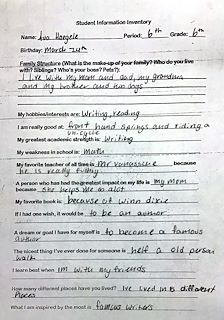 Student Information Inventory
Name: Ava Period: 6th Grade: 6th
Birthday: March 24th
Family Structure (What is the make-up of your family? Who do you live with? Siblings? Who's your boss? Pets?):
I live with my mom and dad, my grandma
and my brother and two dogs
My hobbies/interests are: Writing, reading
I am really good at: front hand springs and riding a
unicycle
My greatest academic strength is: Writing
My weakness in school is: math
My favorite teacher of all time is mr because
he is really funny
A person who has had the greatest impact on my life is my mom
because she helps me alot
My favorite book is: because of winn dixie
If I had one wish, it would be to be an author
A dream or goal I have for myself is to become a famous
author
The nicest thing I've ever done for someone is help a old person
walk
I learn best when im with my friends
How many different places you lived? I've lived in 3 different
places
What I am inspired by the most is famous writers